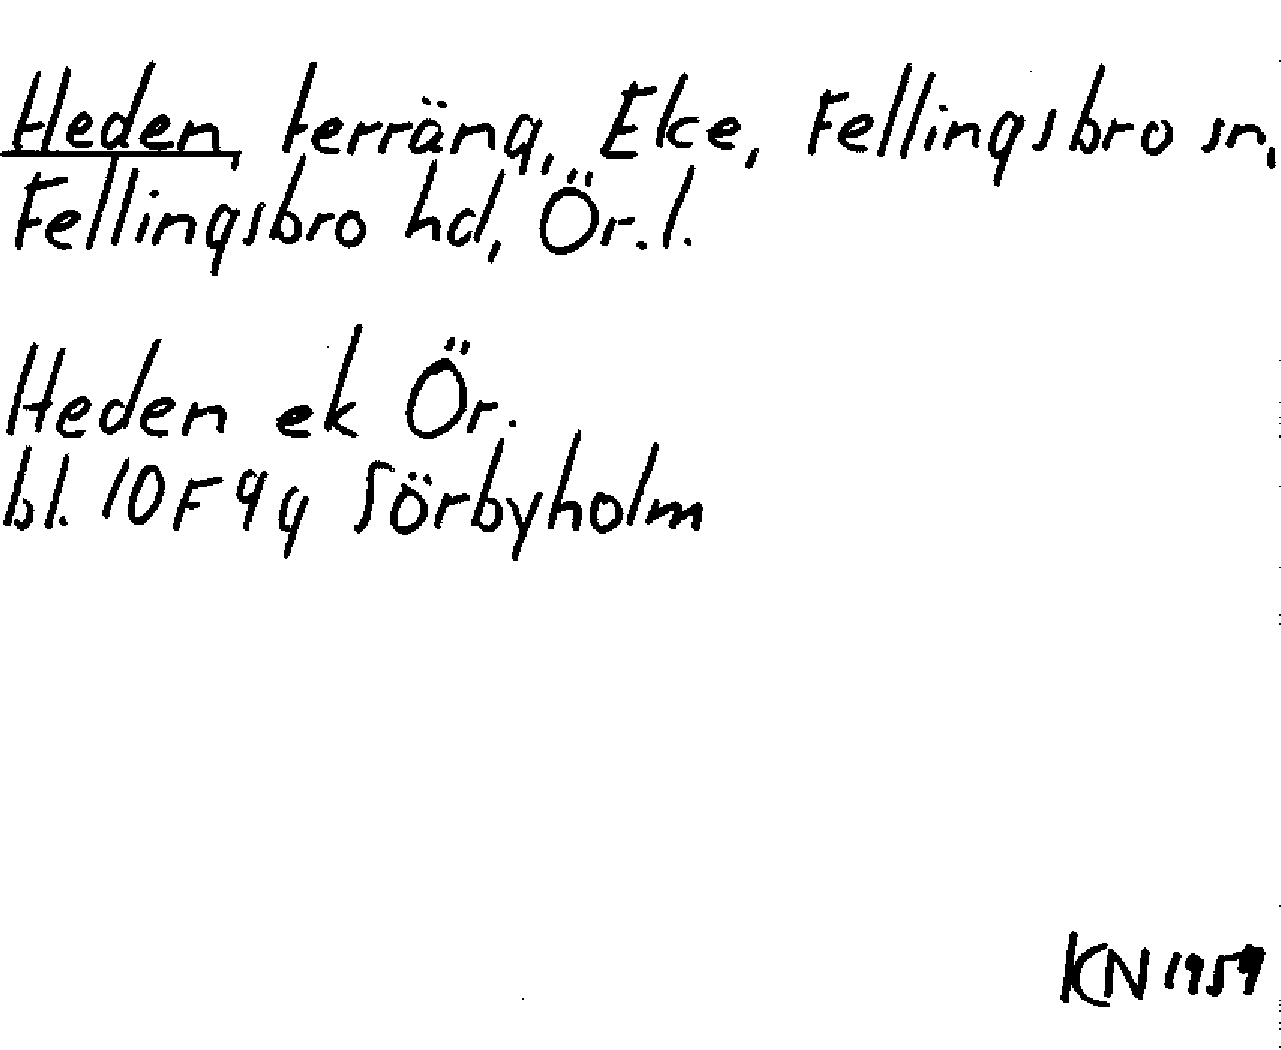 Heden, terräng, Eke, Fellingsbro sn,
Fellingsbro hd, Ör.l.
Heden ek Ör.
bl. 10F 9g Sörbyholm
KN 1959